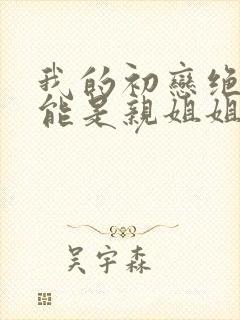 我的初戀绝
能是親姐姐
吴宇森